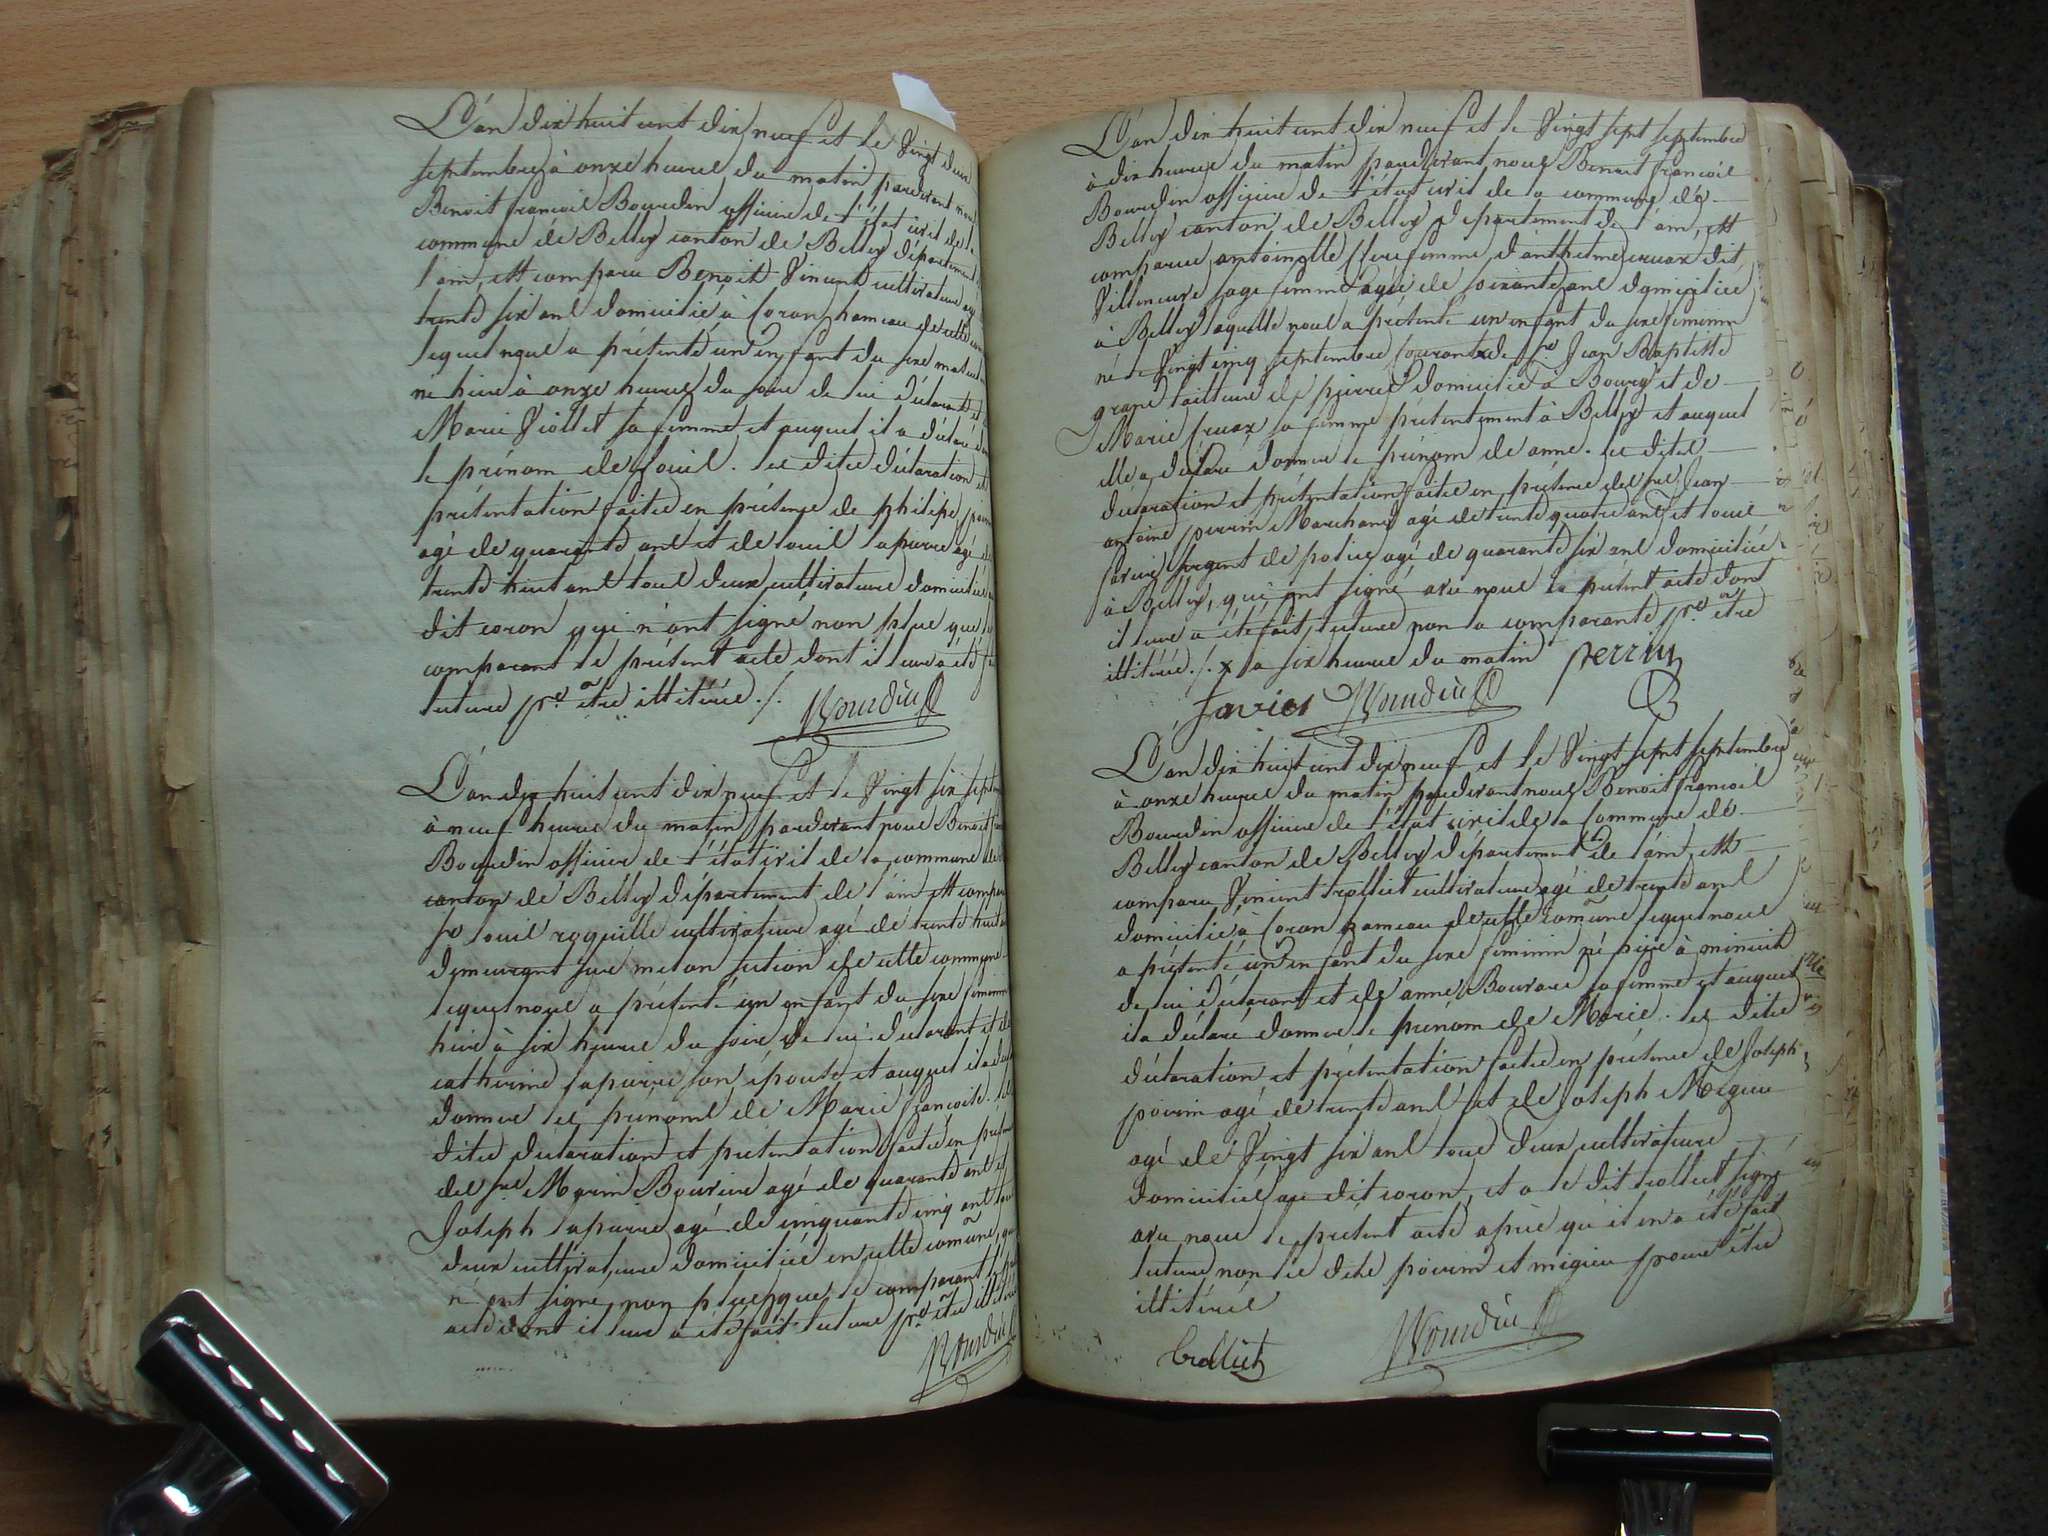 L'an dix huit cent dix neuf et le Vingt deux
septembre à onze heures du matin pardevant nous
Benoit françois Bourdin officier de l'état civil de la
commune de Belley canton de Belley département
l'ain, est comparu Benoit Vincent cultivateur agé
trente six ans domicilié à Coron hameau de cette
lequel nous a présenté un enfant du sexe masculin
né hier à onze heures du soir de lui déclarant et
Marie Viollet sa femme et auquel il a déclaré
le prénom de Louis. les dites déclaration et
présentation faites en présence de philipe
agé de quarante ans et de Louis Lapierre agé de
trente huit ans tous deux cultivateurs domiciliés
dit coron qui n'ont signé non plus que le
comparant le présent acte dont il leur a été
lecture pr être illitérés ./.
Bourdin
L'an dix huit cent dix neuf et le Vingt six
à neuf heures du matin pardevant nous Benoit
Bourdin officier de l'état civil de la commune de
canton de Belley département de l'ain est comparu
Sr Louis roquille cultivateur agé de trente huit
demeurant sur section de cette commune
lequel nous a présenté un enfant du sexe féminin
hier à six heures du soir de lui déclarant et de
catherine Lapierre son épouse et auquel il a
donner les prénoms de Marie françoise. les
dites déclaration et présentation faites en
des Srs Marin Bouvier agé de quarante ans et
Joseph Lapierre agé de cinquante cinq ans tous
deux cultivateurs domiciliés en cette comune, qui
n'ont signé non plus que le comparant le
acte dont il leur a été fait lecture pr être illitérés
Bourdin
L'an dix huit cent dix neuf et le Vingt sept septembre
à dix heures du matin pardevant nous Benoit françois
Bourdin officier de l'état civil de la commune de
Belley canton de Belley département de l'ain, est
comparue antoinette Clerc femme d'anthelme cruax dit
Villeneuve sage femme agée de soixante ans domiciliée
à Belley laquelle nous a présenté un enfant du sexe féminin
né le Vingt cinq septembre Courant x de Sr Jean Baptiste
grand tailleur de pierres domicilié à Bourg et de
Marie Cruax sa femme présentement à Belley et auquel
elle a déclaré donner le prénom de anne. les dites
déclaration et présentation faites en présence des Srs Jean
antoine perrin Marchand agé de trente quatre ans et Louis
Javier sergent de police agé de quarante six ans domiciliés
à Belley, qui ont signé avec nous le présent acte dont
il leur a été fait lecture non la comparante pr être
illitérée ./. x à six heures du matin perrin
Javier Bourdin
L'an dix huit cent dix neuf et le Vingt sept septembre
à onze heures du matin pardevant nous Benoit françois
Bourdin officier de l'état civil de la Commune de
Belley canton de Belley département de l'ain, est
comparu Vincent trolliet cultivateur agé de trente ans
domicilié à Coron hameau de cette comune lequel nous
a présenté un enfant du sexe féminin né hier à minuit
de lui déclarant et de anne Bouvard sa femme et auquel
il a déclaré donner le prénom de Marie. les dites
déclaration et présentation faites en présence de Joseph
poirin agé de trente ans et de Joseph Migieu
agé de Vingt six ans tous deux cultivateurs
domiciliés au dit coron, et a le dit trolliet signé
avec nous le présent acte après qu'il en a été fait
lecture non les dits poirin et migieu pour être
illitérés
trolliet Bourdin